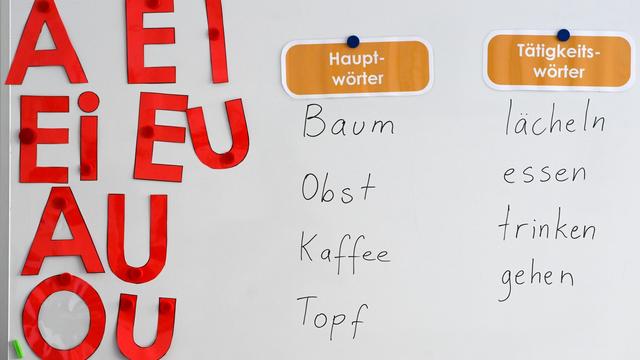 A E I
Ei EU
AU
O U
Haupt-
wörter
Baum
Obst
Kaffee
Topf
Tätigkeits-
wörter
lächeln
essen
trinken
gehen